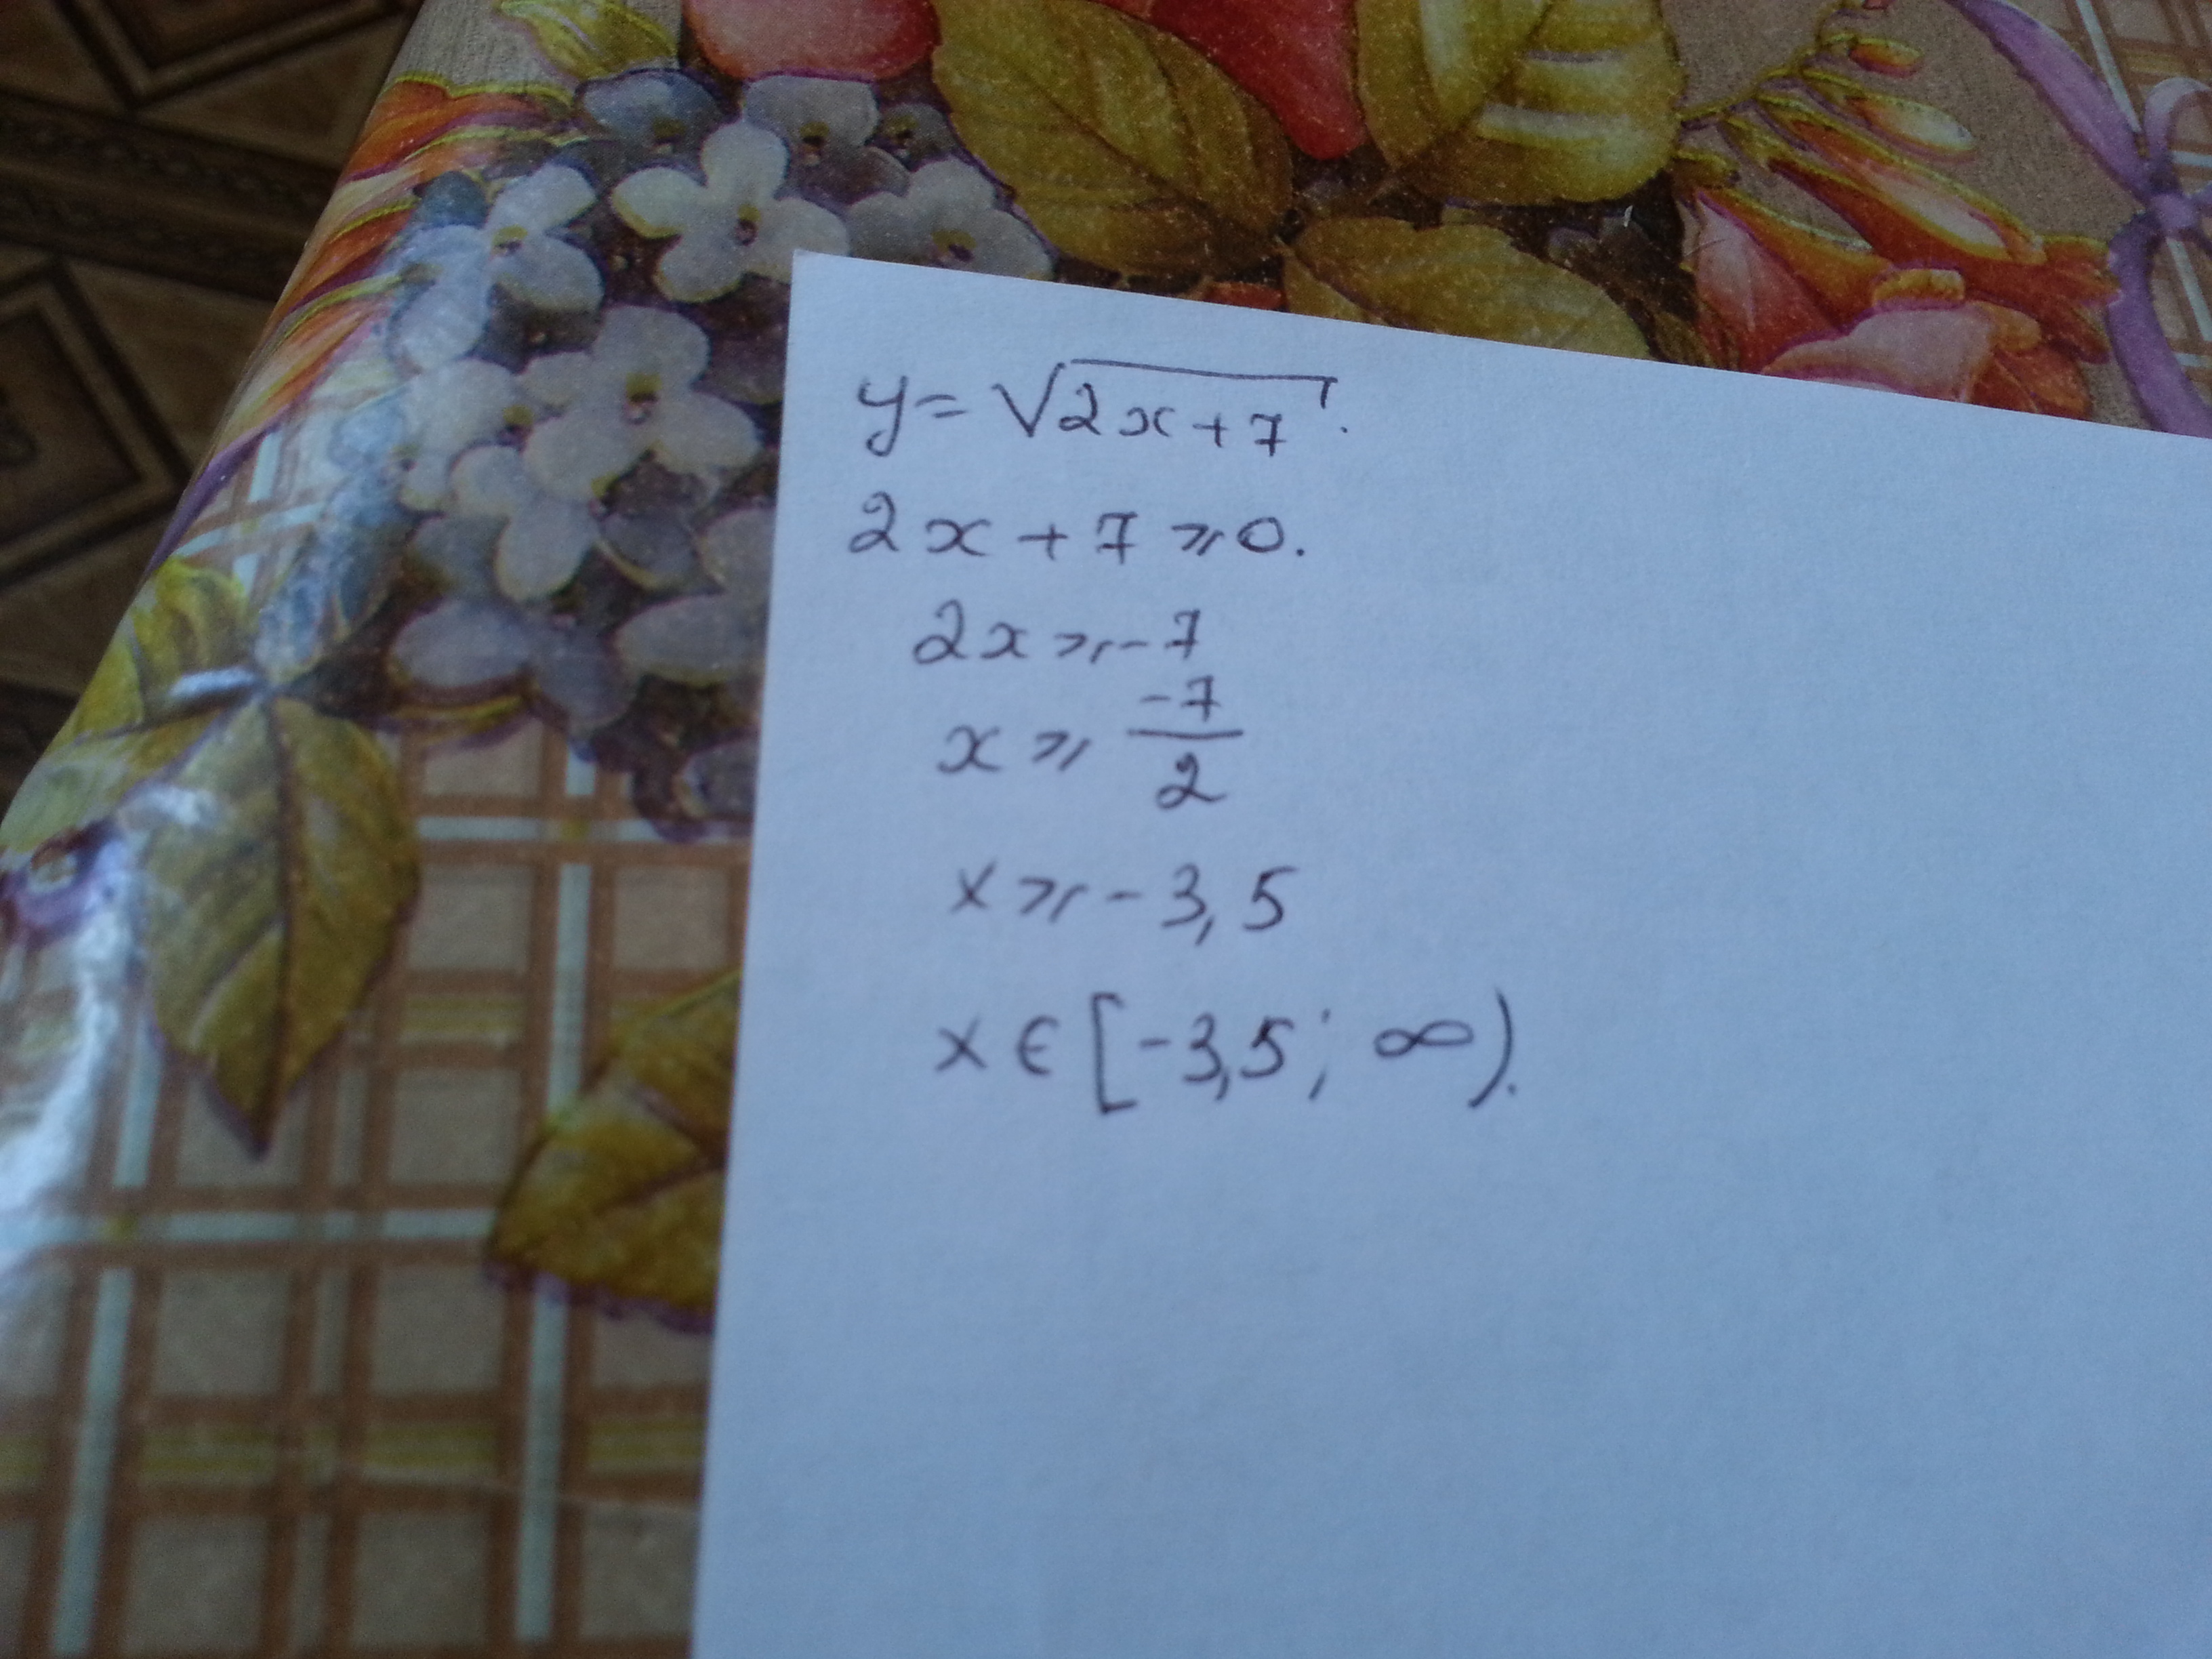 y = √(2x + 7).
2x + 7 ⩾ 0.
2x ⩾ -7
x ⩾ -7/2
x ⩾ -3,5
x ∈ [-3,5; ∞).